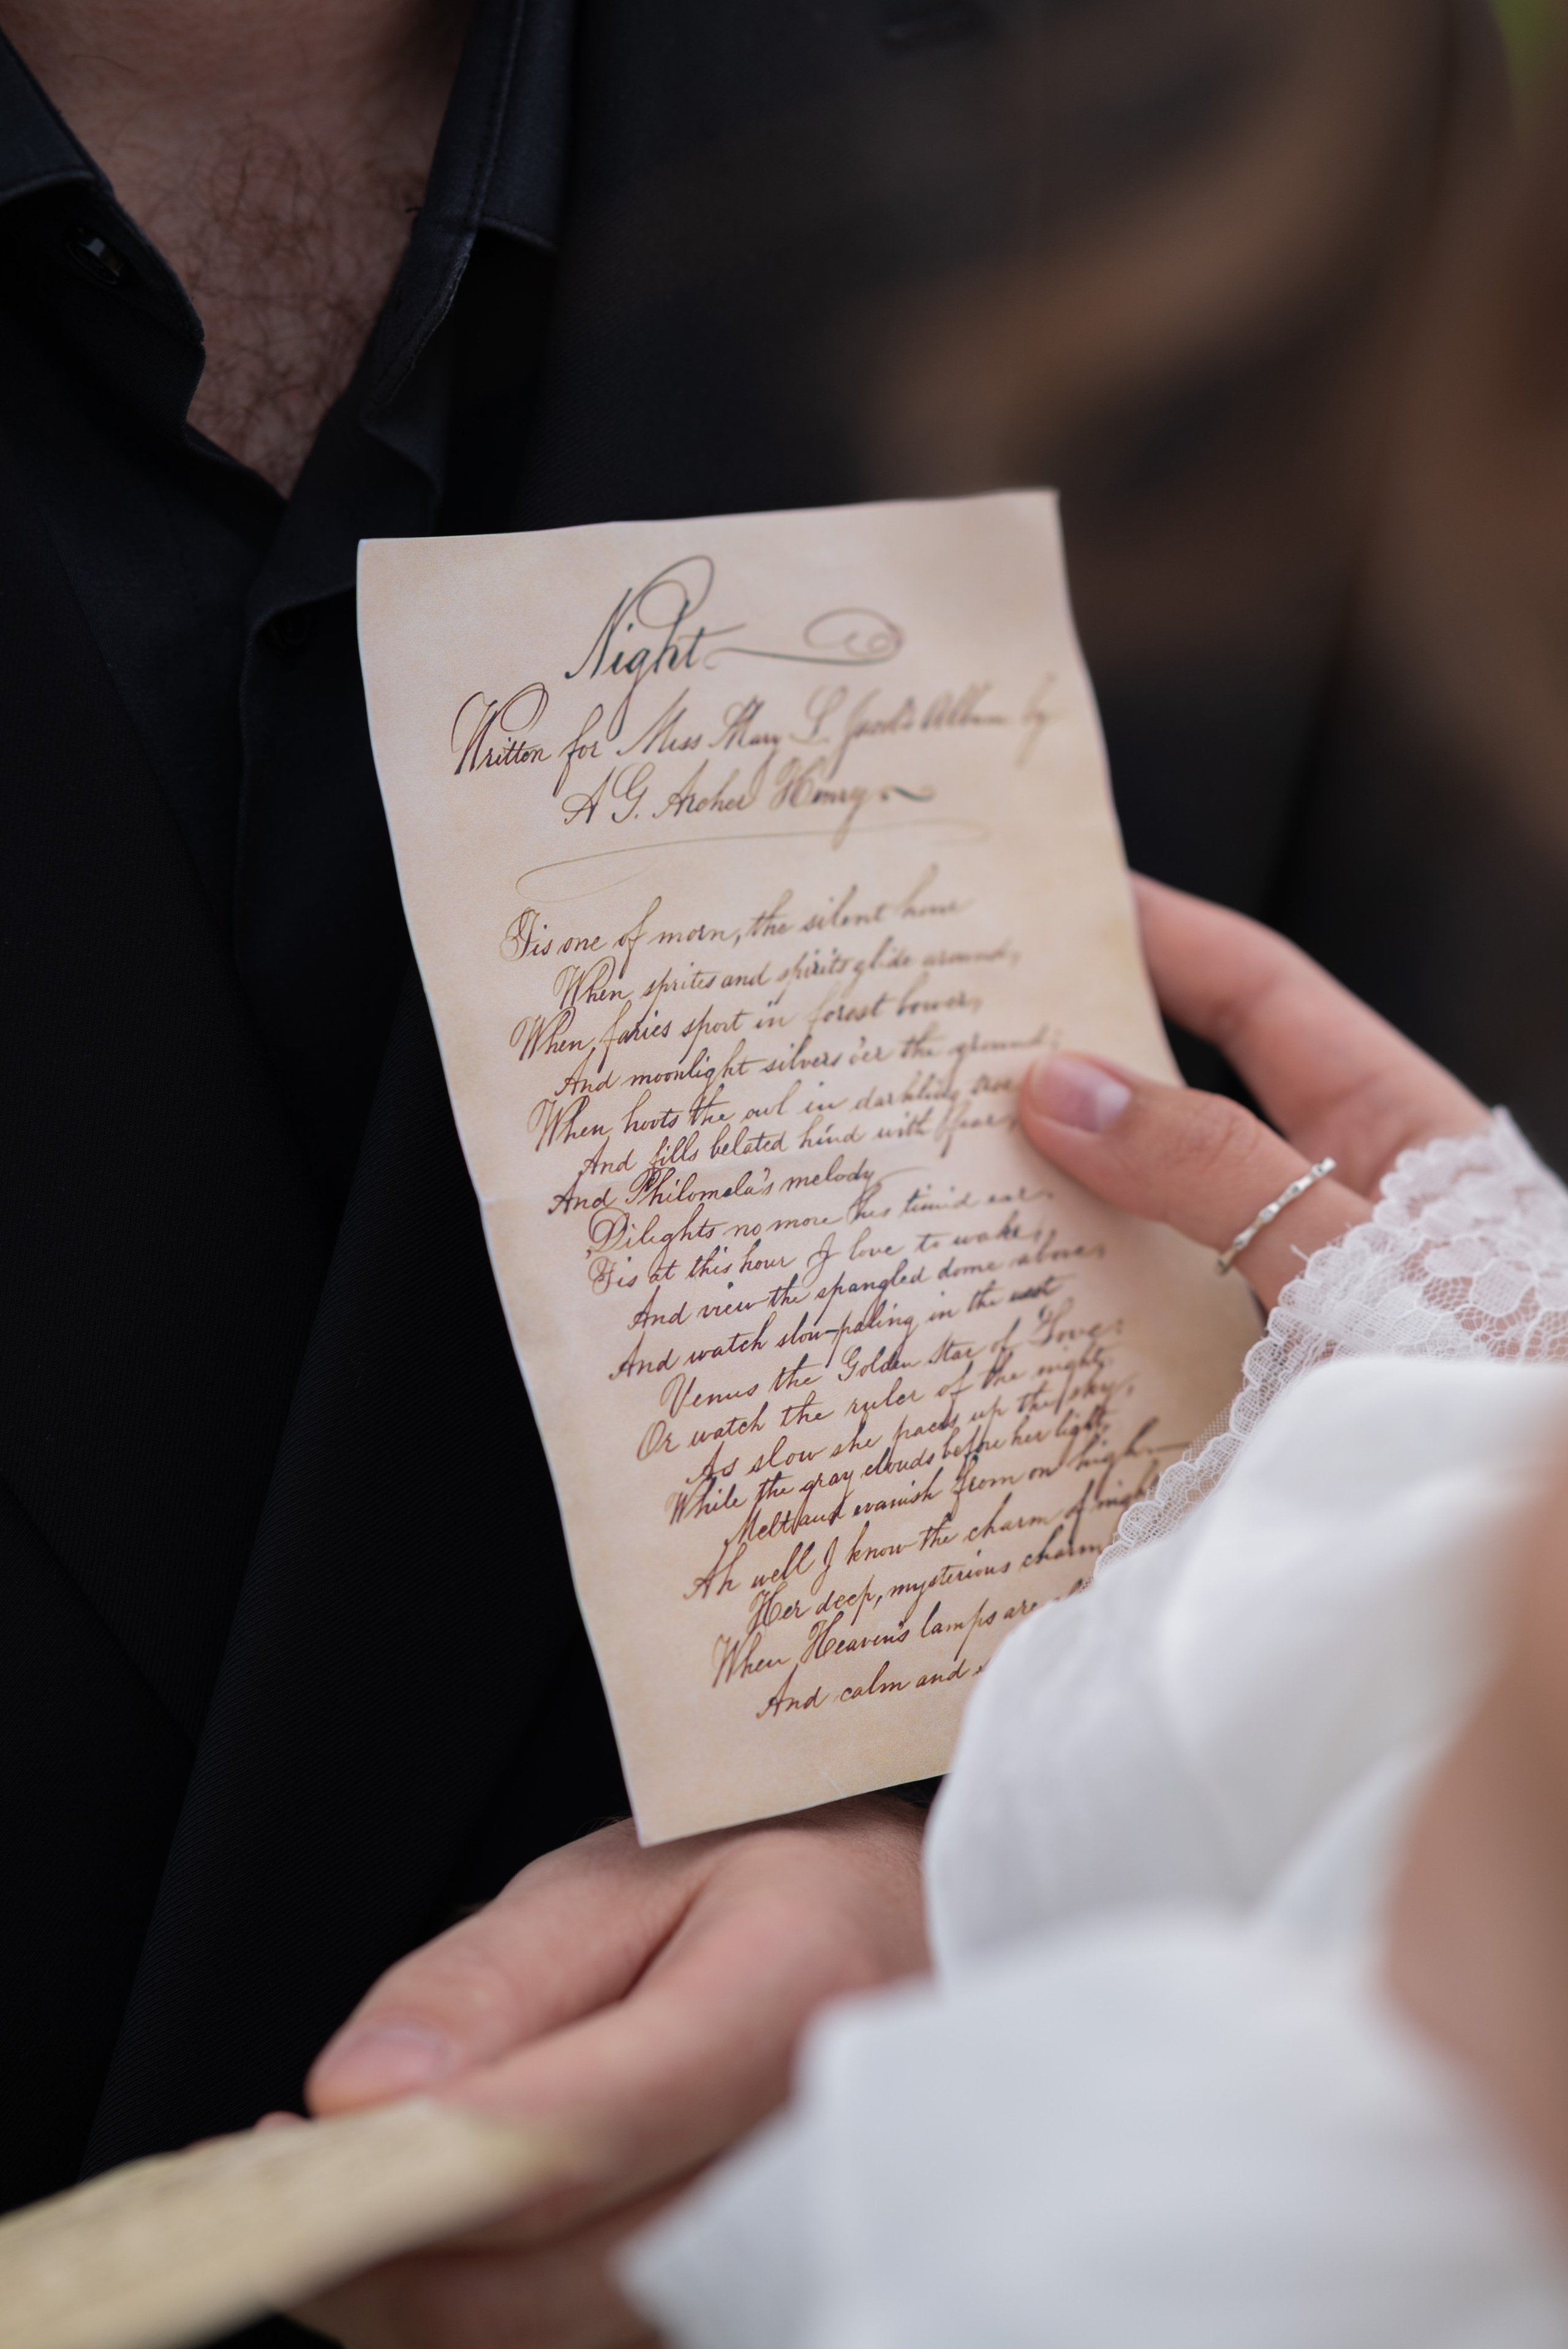 Night
Written for Miss Mary L. Album by
A G. Archer Henry
Tis one of morn, the silent hour
When sprites and spirits glide around,
When faries sport in forest bower,
And moonlight silvers o'er the ground;
When hoots the owl in darkling tree
And fills belated hind with fear,
And Philomela's melody
Dilights no more his timid ear.
Tis at this hour I love to wake,
And view the spangled dome above,
And watch slow-paling in the
Venus the Golden Star of Love:
Or watch the ruler of the night,
As slow she paces up the sky,
While the gray clouds before her light,
Melt and evanish from on high.
Ah well I know the charm of night
Her deep, mysterious charm
When Heaven's lamps are
And calm and